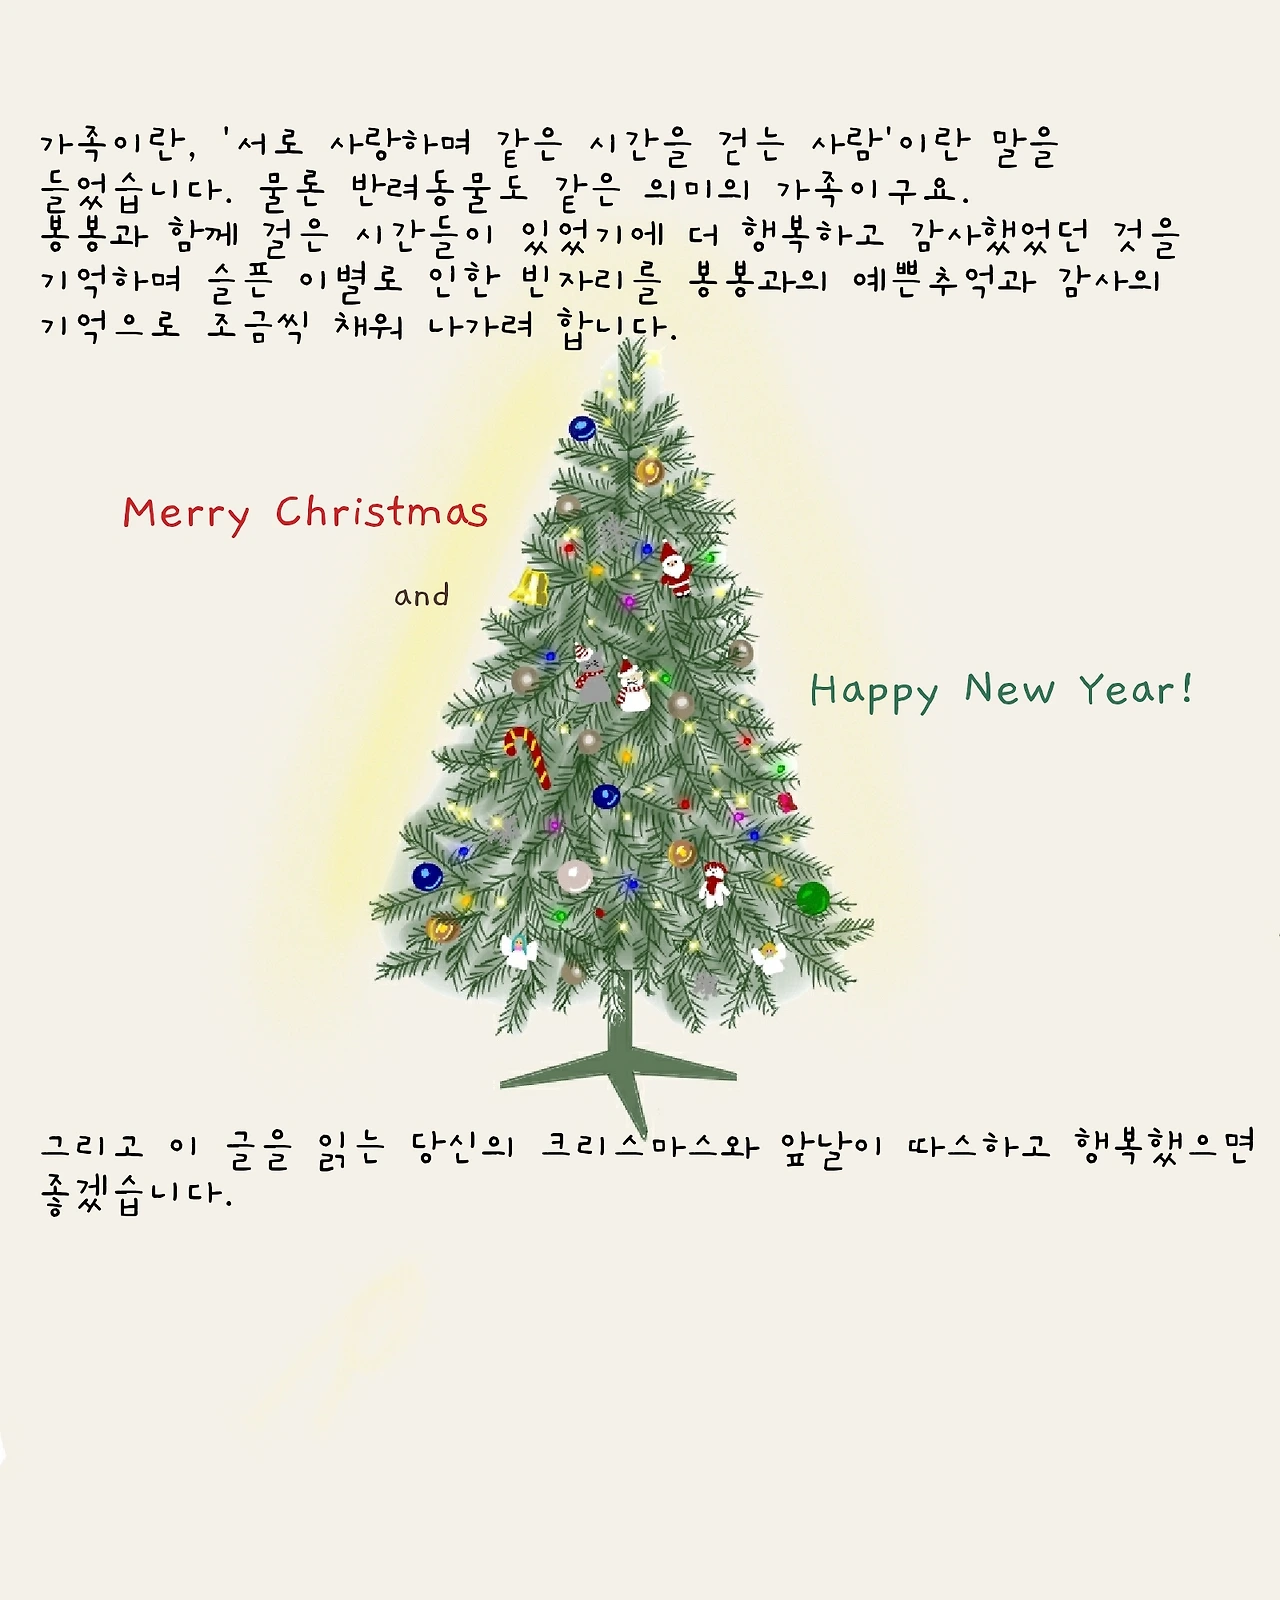 가족이란, '서로 사랑하며 같은 시간을 걷는 사람'이란 말을
들었습니다. 물론 반려동물도 같은 의미의 가족이구요.
봉봉과 함께 걸은 시간들이 있었기에 더 행복하고 감사했었던 것을
기억하며 슬픈 이별로 인한 빈자리를 봉봉과의 예쁜추억과 감사의
기억으로 조금씩 채워 나가려 합니다.
Merry Christmas
and
Happy New Year!
그리고 이 글을 읽는 당신의 크리스마스와 앞날이 따스하고 행복했으면
좋겠습니다.